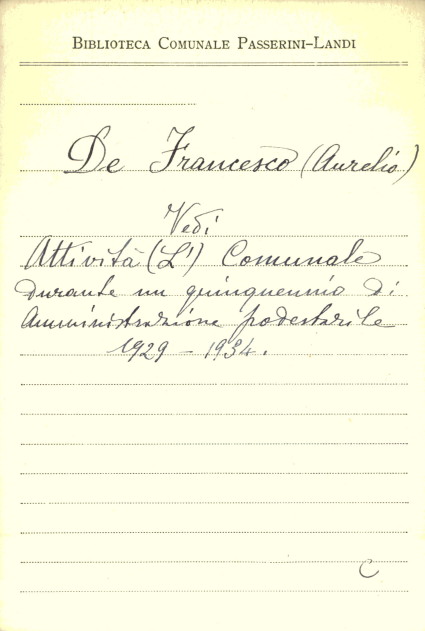 Biblioteca Comunale Passerini-Landi
De Francesco (Aurelio)
Vedi
Attività (L') Comunale
durante un quinquennio di
Amministrazione podestarile
1929 - 1934.
C